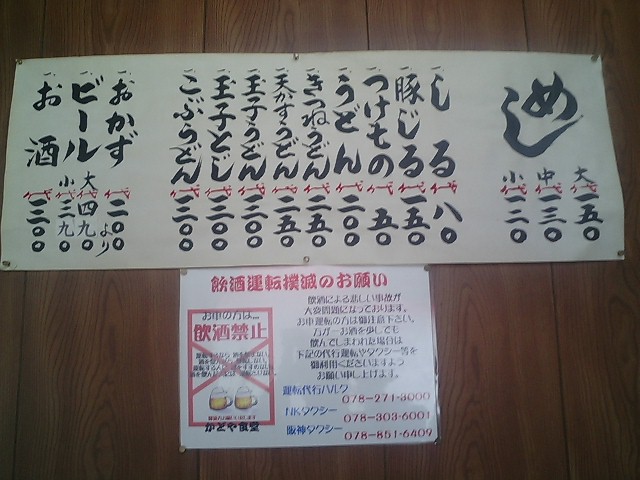 めし
大 一五〇
中 一三〇
小 一二〇
一、しる 代 八〇
一、豚じる 代 一五〇
一、つけもの 代 五〇
一、うどん 代 二〇〇
一、きつねうどん 代 二五〇
一、天かすうどん 代 二五〇
一、玉子うどん 代 三〇〇
一、玉子とじ 代 三〇〇
一、こぶうどん 代 三〇〇
一、おかず 代 二〇〇より
一、ビール 大 代 四九〇
小 代 三九〇
一、お酒 代 三〇〇
飲酒運転撲滅のお願い
お車の方は…
飲酒禁止
かどや食堂
飲酒による悲しい事故が
大変問題になっております。
お車運転の方は御注意下さい。
万が一お酒を少しでも
飲んでしまわれた場合は
下記の代行運転やタクシー等を
御利用くださいますよう
お願い申し上げます。
運転代行ハルク
078-271-3000
NKタクシー
078-303-6001
阪神タクシー
078-851-6409